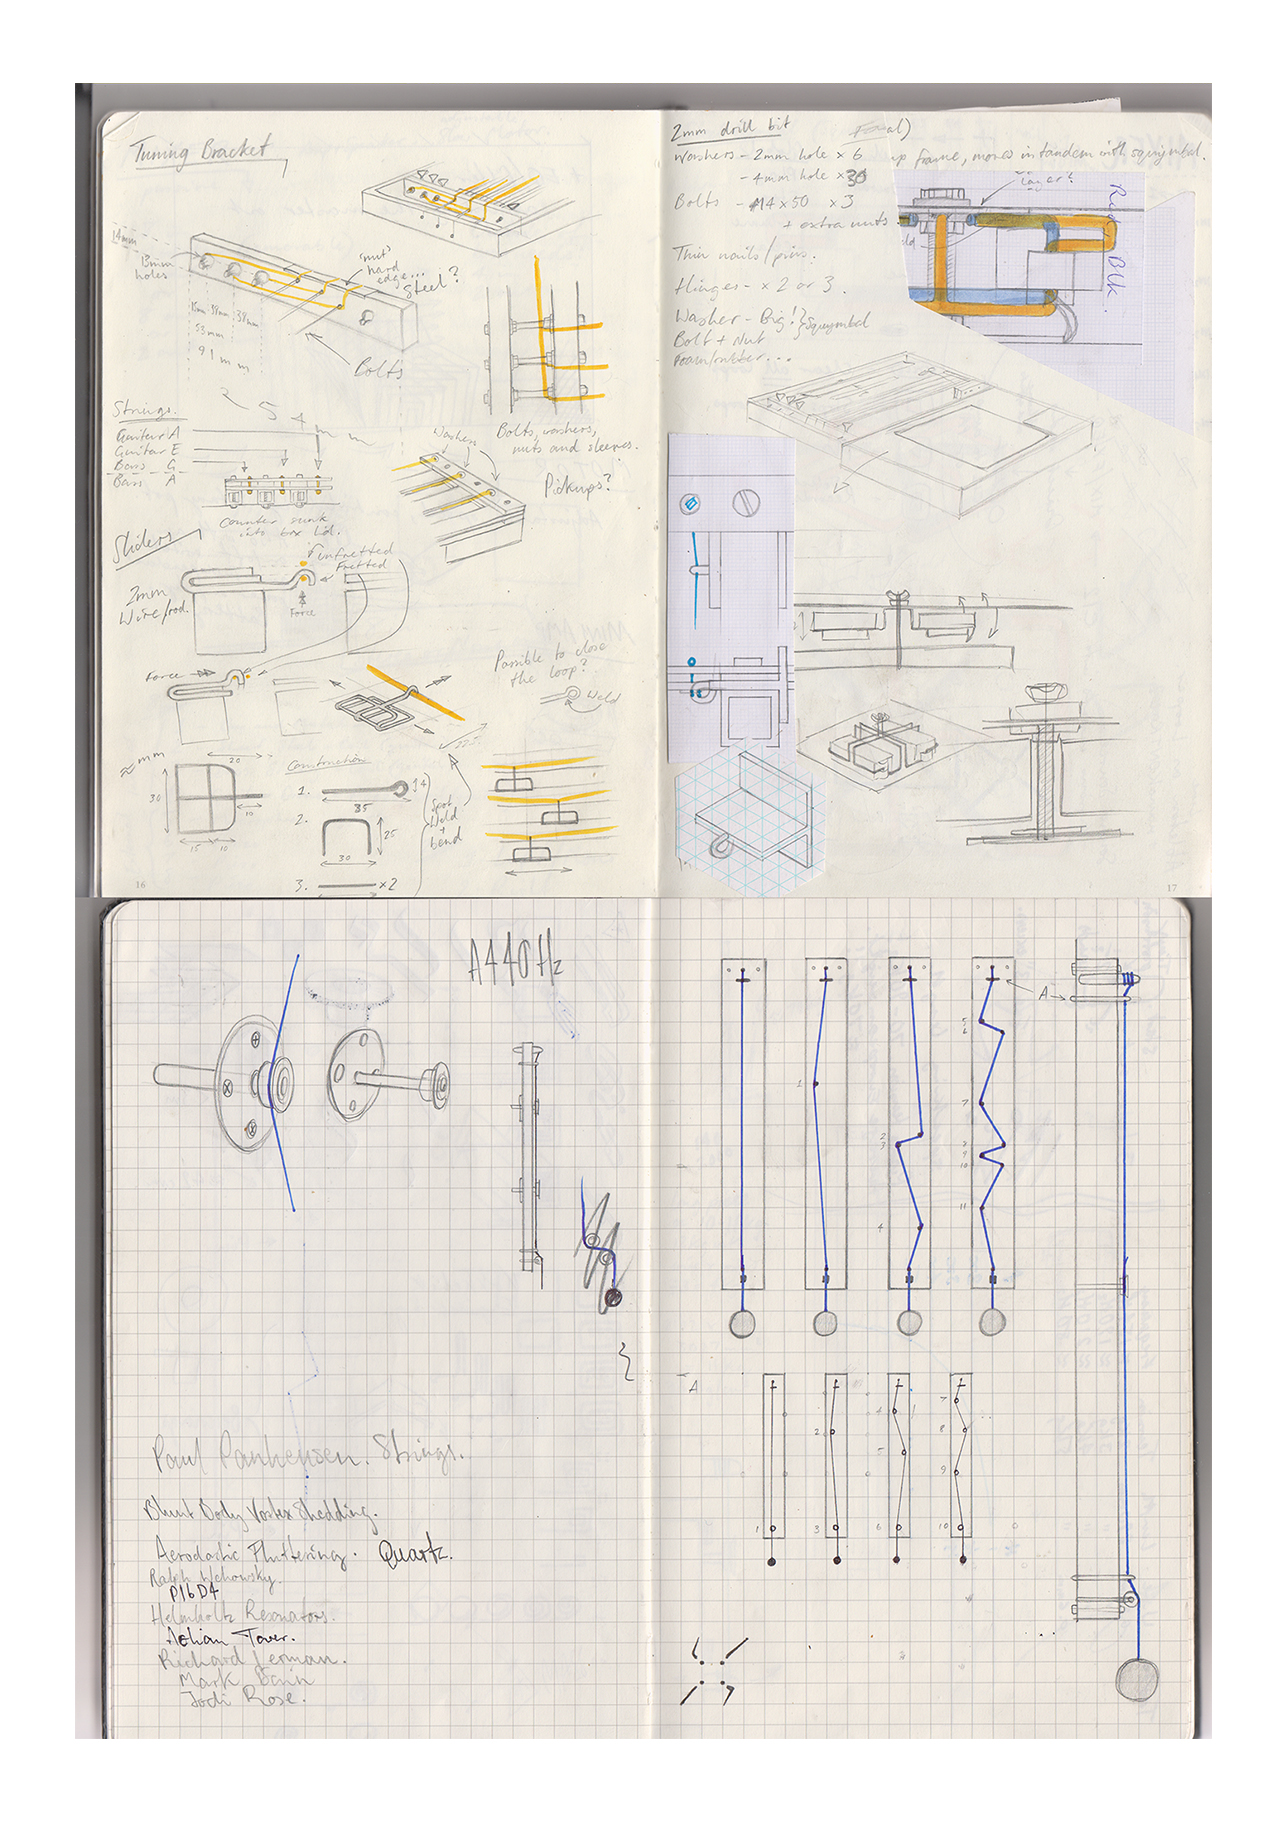 Tuning Bracket
14mm
13mm
holes
'nut'
hard
edge...
steel?
15mm 38mm 38mm
53mm
91mm
254mm
Bolts
Strings.
Guitar A
Guitar E
Bass G
Bass A
Counter sunk
into box lid.
Washers
Bolts, washers,
nuts and sleeves.
Pickups?
Sliders
unfretted
Fretted
2mm
Wire/rod.
Force
Force
Possible to close
the loop?
Weld
≈mm
20
30
10
15 10
Construction
1.
4
85
2.
25
30
3. x2
Spot
Weld
+
bend
16
2mm drill bit
Washers - 2mm hole x 6
- 4mm hole x 30
up frame, moves in tandem with squymbal.
layer?
Bolts - M4 x 50 x 3
+ extra nuts
Thin nails/pins.
Hinges - x 2 or 3.
Washer - Big! } Squymbal
Bolt + Nut
Foam/rubber...
Blk
17
A440Hz
Paul Panhensen. Strings.
Blunt Body Vortex Shedding.
Aerodactic Fluttering. Quartz.
Ralph Wehowsky.
P16D4
Helmholtz Resonators.
Aelian Tower.
Richard Lerman.
Mark Bain
Jodi Rose.
A
1
2
3
4
5
6
7
8
9
10
11
A
1
2
3
4
5
6
7
8
9
10